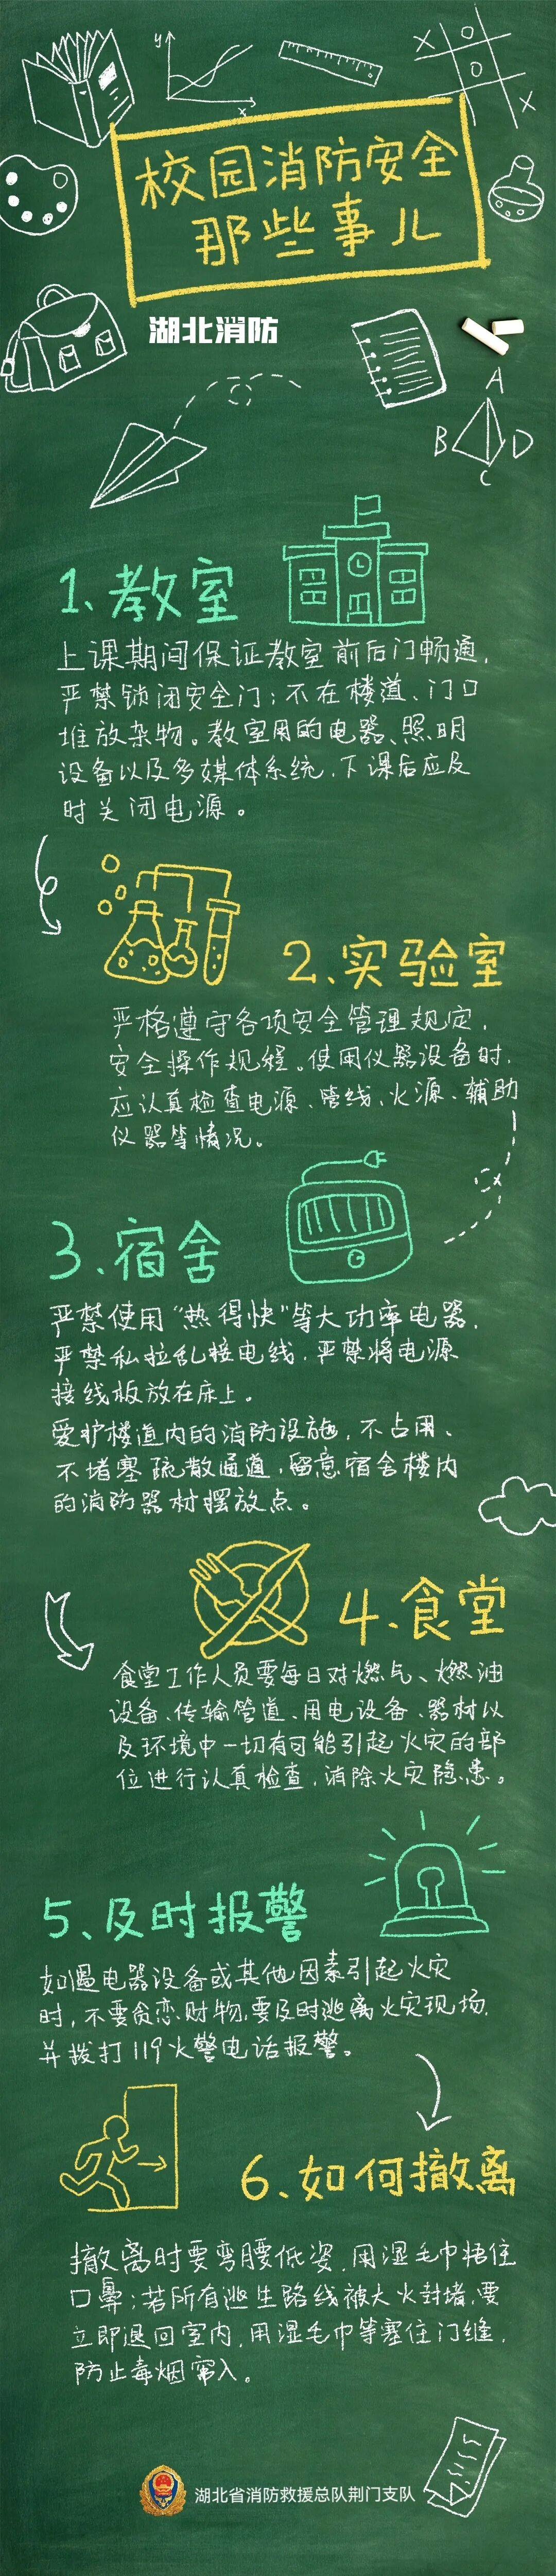 y
x
X
O
O
X
校园消防安全
那些事儿
湖北消防
A
B
D
C
1、教室
上课期间保证教室前后门畅通,
严禁锁闭安全门;不在楼道、门口
堆放杂物。教室用的电器、照明
设备以及多媒体系统,下课后应及
时关闭电源。
2、实验室
严格遵守各项安全管理规定,
安全操作规程。使用仪器设备时,
应认真检查电源、管线、火源、辅助
仪器等情况。
3、宿舍
严禁使用“热得快”等大功率电器,
严禁私拉乱接电线,严禁将电源
接线板放在床上。
爱护楼道内的消防设施,不占用、
不堵塞疏散通道,留意宿舍楼内
的消防器材摆放点。
4、食堂
食堂工作人员要每日对燃气、燃油
设备、传输管道、用电设备、器材以
及环境中一切有可能引起火灾的部
位进行认真检查,消除火灾隐患。
5、及时报警
如遇电器设备或其他因素引起火灾
时,不要贪恋财物,要及时逃离火灾现场,
并拨打119火警电话报警。
6、如何撤离
撤离时要弯腰低姿,用湿毛巾捂住
口鼻;若所有逃生路线被大火封堵,要
立即退回室内,用湿毛巾等塞住门缝,
防止毒烟窜入。
湖北省消防救援总队荆门支队